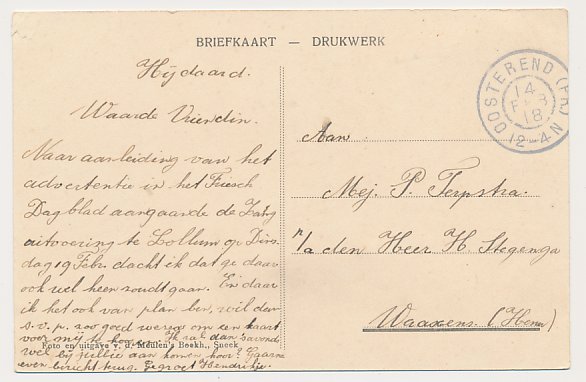 BRIEFKAART — DRUKWERK
OOSTEREND (FR.)
14
FEB
18
12-4 N
Hijdaard.
Waarde Vriendin.
Naar aanleiding van het
advertentie in het Friesch
Dagblad aangaande de Zang
uitvoering te Lollum op Dins
dag 19 Febr. dacht ik dat ge daar
ook wel heen zoudt gaan. En daar
ik het ook van plan ben, wil den
s.v.p. zoo goed wezen om een kaart
voor mij te koopen. Ik zal dan s'avonds
wel bij jullie aan komen hoor? Gaarne
even bericht terug. Gegroet Hendrikje.
Foto en uitgave v. d. Meulen's Boekh., Sneek
Aan
Mej. P. Terpstra.
p/a den Heer H. Stegenga
Waaxens. (Henn)